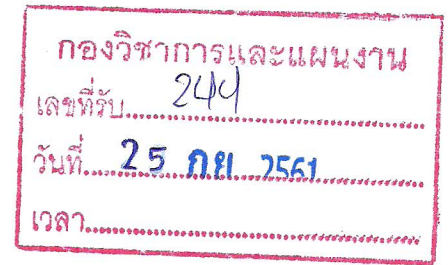 กองวิชาการและแผนงาน
เลขที่รับ 244
วันที่ 25 กย. 2561
เวลา